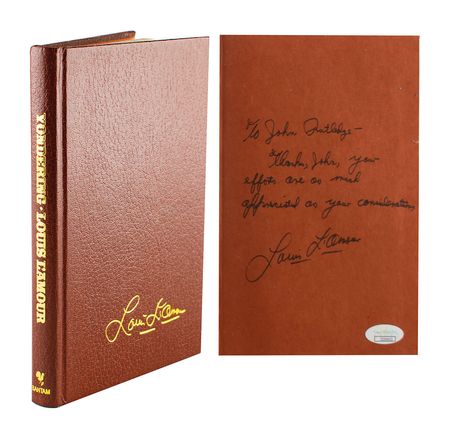 YONDERING • LOUIS L'AMOUR
BANTAM
Louis L'Amour
To John Rutledge –
Thanks, John, your
efforts are as much
appreciated as your consideration
Louis L'Amour